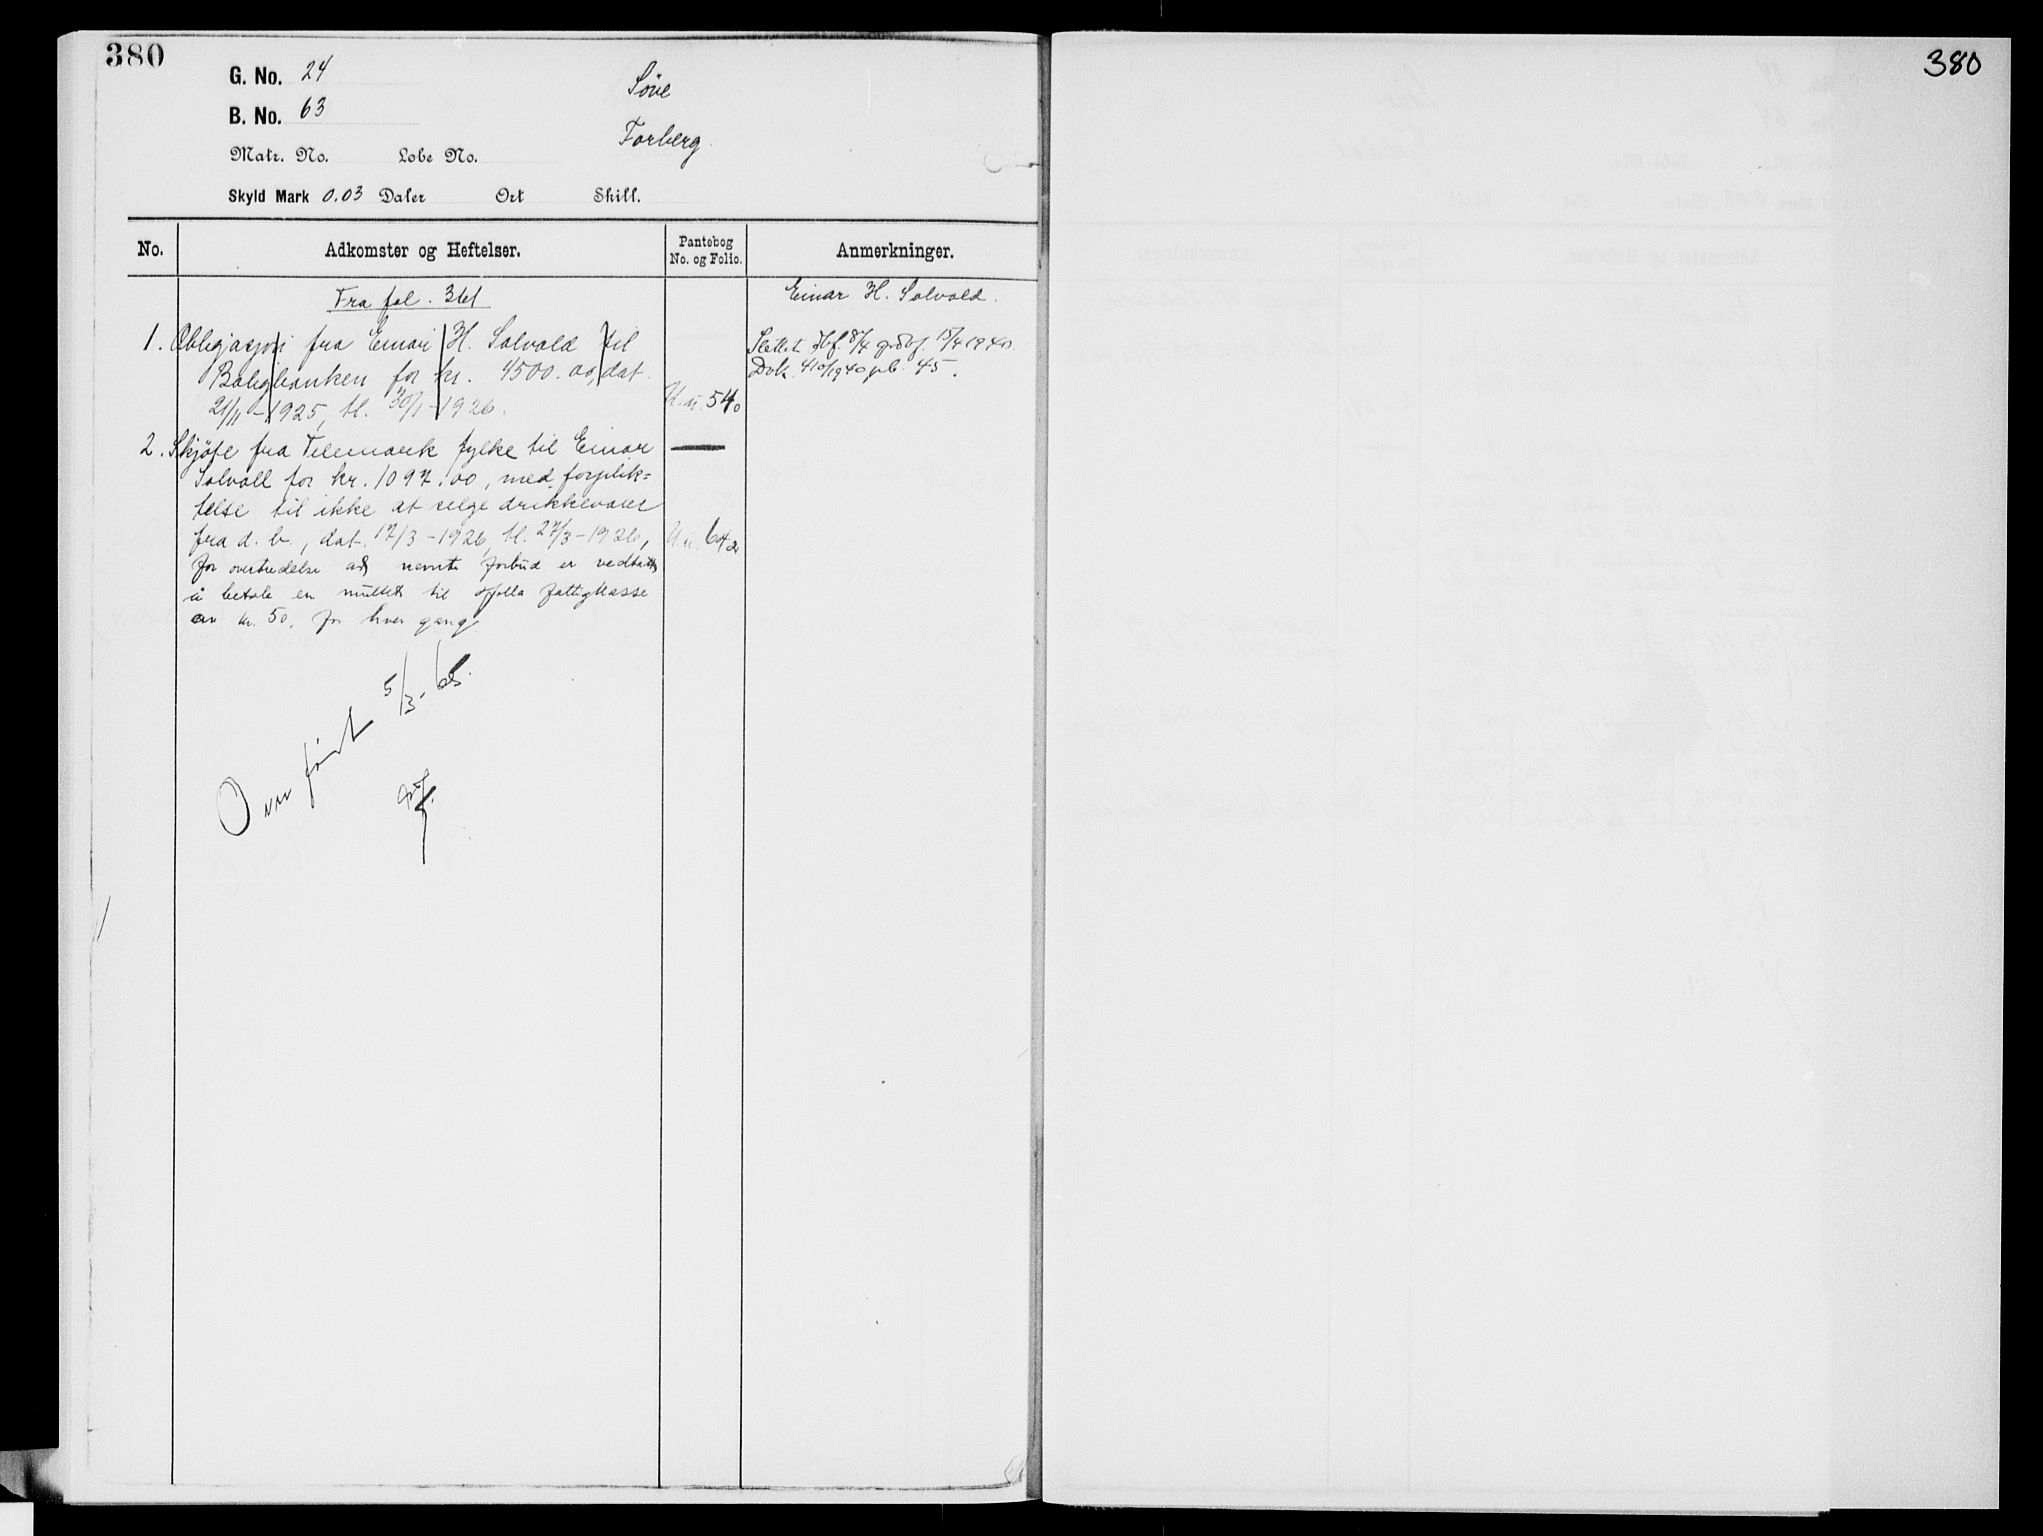 380
380
G. No. 24
Söve
B. No. 63
Forberg
Matr. No. Lobe No.
Skyld Mark 0.03 Daler Ort Skill.
No. Adkomster og Heftelser. Pantebog No. og Folio. Anmerkninger.
Fra fol. 361
Einar H. Solvold.
1. Obligasjon fra Einar H. Solvold til
Boligbanken for kr. 4500.00, dat.
21/11-1925, tl. 30/1-1926.
U.u. 540
Slettet 8/4 15/4 1940.
Dok. 410/1940 pb. 45.
2. Skjöte fra Telemark fylke til Einar
Solvoll for kr. 1097.00, med forplik=
telse til ikke at selge drikkevarer
fra d. b., dat. 17/3-1926, tl. 27/3-1926,
U.u. 642
for overtredelse av nevnte forbud er vedtatt
å betale en mulkt til Holla fattigkasse
av kr. 50. for hver gang.
Overført 5/3-65.